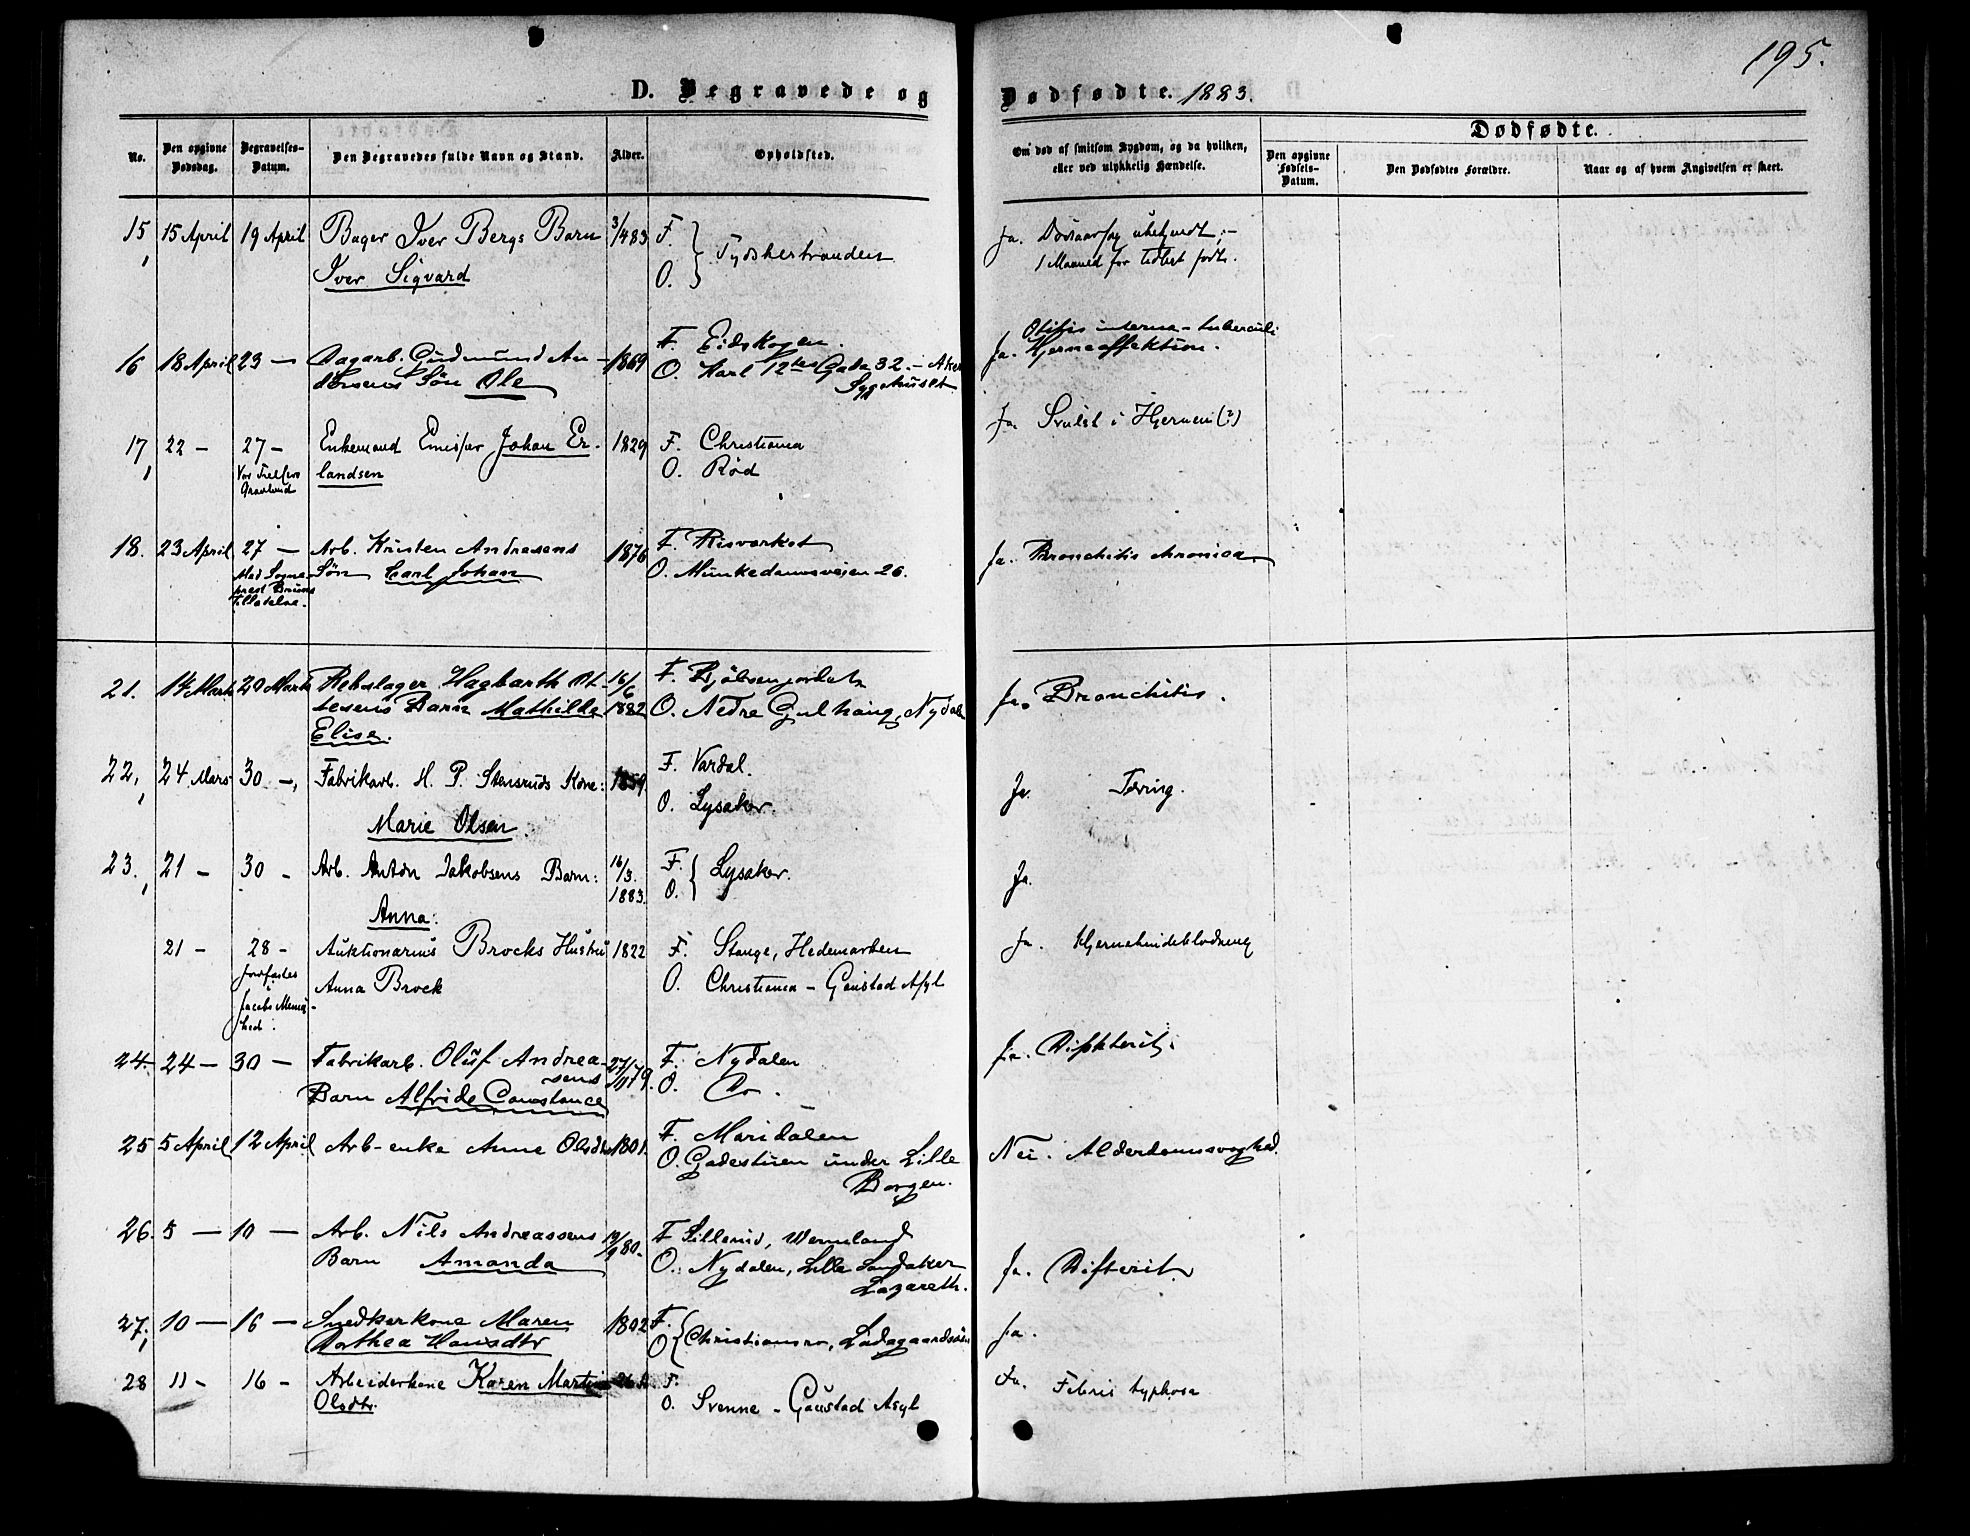 195.
D. Begravede og Dødfødte. 1883.
No.
Den opgivne Dødsdag.
Begravelses-Datum.
Den Begravedes fulde Navn og Stand.
Alder.
Opholdsted.
Om død af smitsom Sygdom, og da hvilken,
eller ved ulykkelig Hændelse.
Dødfødte.
Den opgivne Fødsels-Datum.
Den Dødfødtes Forældre.
Naar og af hvem Angivelsen er skeet.
15, 15 April 19 April Bager Iver Bergs Barn 3/4 83 F. Ja. Dødsaarsag ubekjendt,-
Iver Sigvard O. } Tydskestranden 1 Maaned for tidligt født.
16 18 April 23 — Dagarb. Gudmund An- 1869 F. Eidskogen. Otitis interna - tubercul:
dersens Søn Ole O. Karl 12tes Gade 32. - Aker Ja. Hjerneaffektion.
Sygehuset
17, 22 - 27 - Enkemand Johan Er- 1829 F. Christiania Ja. Svulst i Hjernen (?)
Vor Frelsers Gravlund landsen O. Rød
18. 23 April 27 — Arb. Kristen Andresens 1876 F. Risverket Ja. Bronchitis chronica
Med Sogne- Søn Carl Johan O. Munkedamsveien 26.
prest Bruns
Tilladelse.
21. 14 Marts 20 Marts Rebslager Hagbarth 16/6 F. Ja. Bronchitis.
Barn Mathilde 1882 O. Nedre Gulhaug, Nydalen
Elise.
22, 24 Mars 30 -, Fabrikarb. H. P. Stensruds Kone: 1859. F. Vardal. Ja. Tæring.
Marie Olsen. O. Lysaker.
23, 21 - 30 - Arb. Anton Jakobsens Barn: 16/3. 1883. F. O. { Lysaker. Ja.
Anna:
21 - 28 - Auktionarius Brocks Hustru 1822 F. Stange, Hedemarken Ja. Hjernehindeblødning
jordfæstes Anna Brock O. Christiania - Gaustad Asyl
i Jacobs Menig-
hed.
24. 24 — 30 — Fabrikarb. Oluf Andrea- F. Nydalen Ja. Difhterit.
sens
Barn Alfride Constance O. Do.
25 5 April 12 April Arb-enke Anne Olsdtr 1801. F. Maridalen Nei. Alderdomssvaghed.
O. Gadestuen under Lille
Borgen.
26. 5 — 10 — Arb. Nils Andreassens 19/9 80. F. Wermland
Barn Amanda O. Nydalen, Lille Sandaker Ja. Difterit.
Lazareth.
27, 10 — 16 — Snedkerkone Maren 1802 F. Ja.
Dorthea Hansdtr O. { Christiansro, Ladegaardsøen
28 11 - 16 - Arbeiderkone Karen Martine F. Ja. Febris typhosa
Olsdtr. O. Svenne - Gaustad Asyl